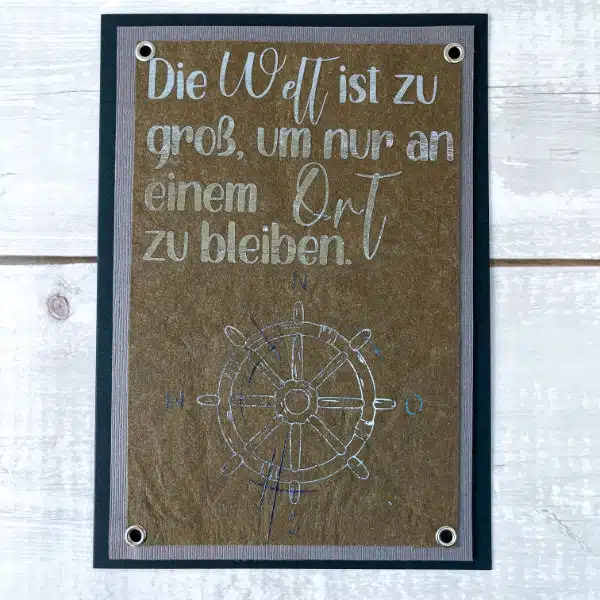 Die Welt ist zu
groß, um nur an
einem Ort
zu bleiben.
N
W O
S